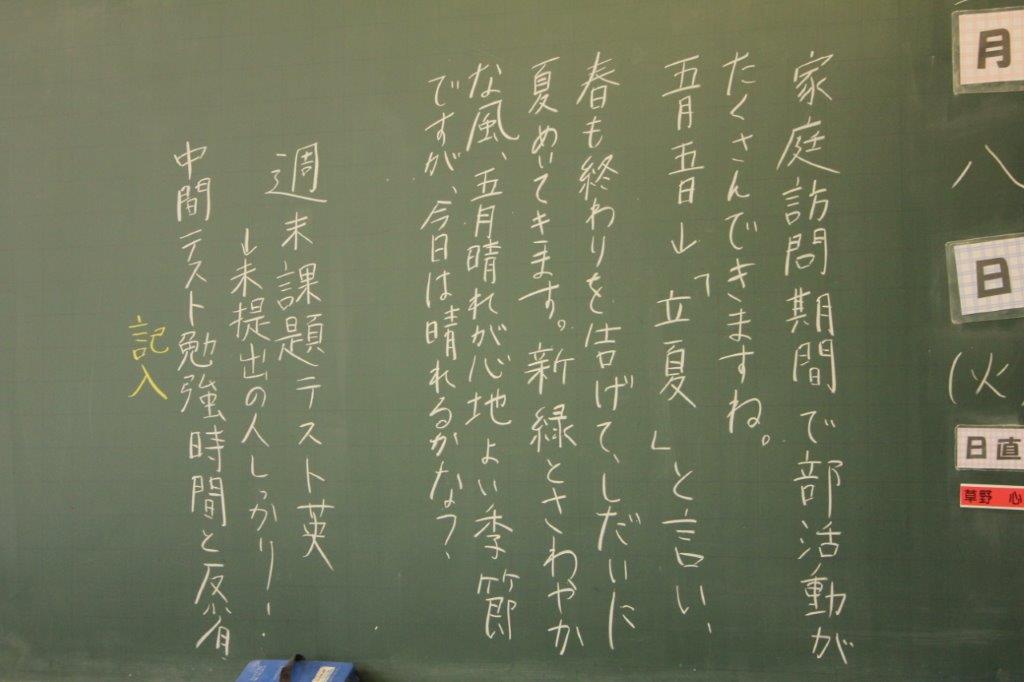 月
八
日
(火
日直
草野 心
家庭訪問期間で部活動が
たくさんできますね。
五月五日→「立夏」と言い、
春も終わりを告げて、しだいに
夏めいてきます。新緑とさわやか
な風、五月晴れが心地よい季節
ですが、今日は晴れるかな？
週末課題テスト英
→未提出の人しっかり！
中間テスト勉強時間と反省
記入